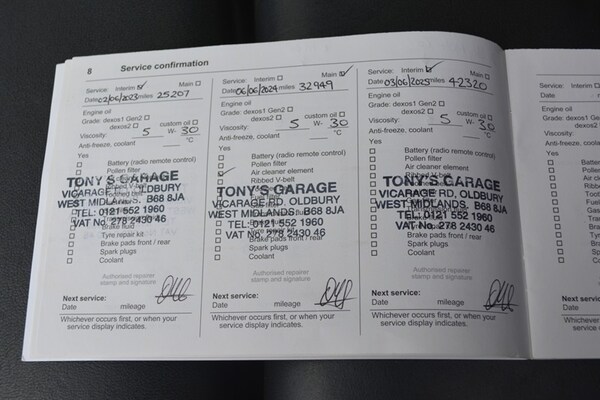 8 Service confirmation
Service: Interim Main
Date 02/06/2023 miles 25207
Engine oil
Grade: dexos1 Gen2
dexos2 custom oil
Viscosity: 5 W- 30
Anti-freeze, coolant °C
Yes
Battery (radio remote control)
Pollen filter
Air cleaner element
Ribbed V-belt
TONY'S GARAGE
VICARAGE RD, OLDBURY
WEST MIDLANDS. B68 8JA
TEL: 0121 552 1960
VAT No. 278 2430 46
Brake fluid
Tyre repair kit
Brake pads front / rear
Spark plugs
Coolant
Authorised repairer
stamp and signature
Next service:
Date mileage
Whichever occurs first, or when your
service display indicates.
Service: Interim Main
Date 06/06/2024 miles 32949
Engine oil
Grade: dexos1 Gen2
dexos2 custom oil
Viscosity: 5 W- 30
Anti-freeze, coolant °C
Yes
Battery (radio remote control)
Pollen filter
Air cleaner element
Ribbed V-belt
TONY'S GARAGE
VICARAGE RD, OLDBURY
WEST MIDLANDS. B68 8JA
TEL: 0121 552 1960
VAT No. 278 2430 46
Tyre repair kit
Brake pads front / rear
Spark plugs
Coolant
Authorised repairer
stamp and signature
Next service:
Date mileage
Whichever occurs first, or when your
service display indicates.
Service: Interim Main
Date 03/06/2025 miles 42320
Engine oil
Grade: dexos1 Gen2
dexos2 custom oil
Viscosity: 5 W- 30
Anti-freeze, coolant °C
Yes
Battery (radio remote control)
Pollen filter
Air cleaner element
Ribbed V-belt
TONY'S GARAGE
VICARAGE RD, OLDBURY
WEST MIDLANDS. B68 8JA
TEL: 0121 552 1960
VAT No. 278 2430 46
Brake pads front / rear
Spark plugs
Coolant
Authorised repairer
stamp and signature
Next service:
Date mileage
Whichever occurs first, or when your
service display indicates.